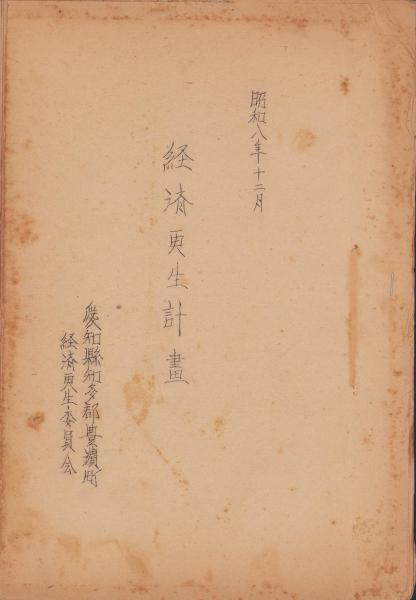 昭和八年十二月
経済更生計畫
愛知縣知多郡豊濱町
経済更生委員会